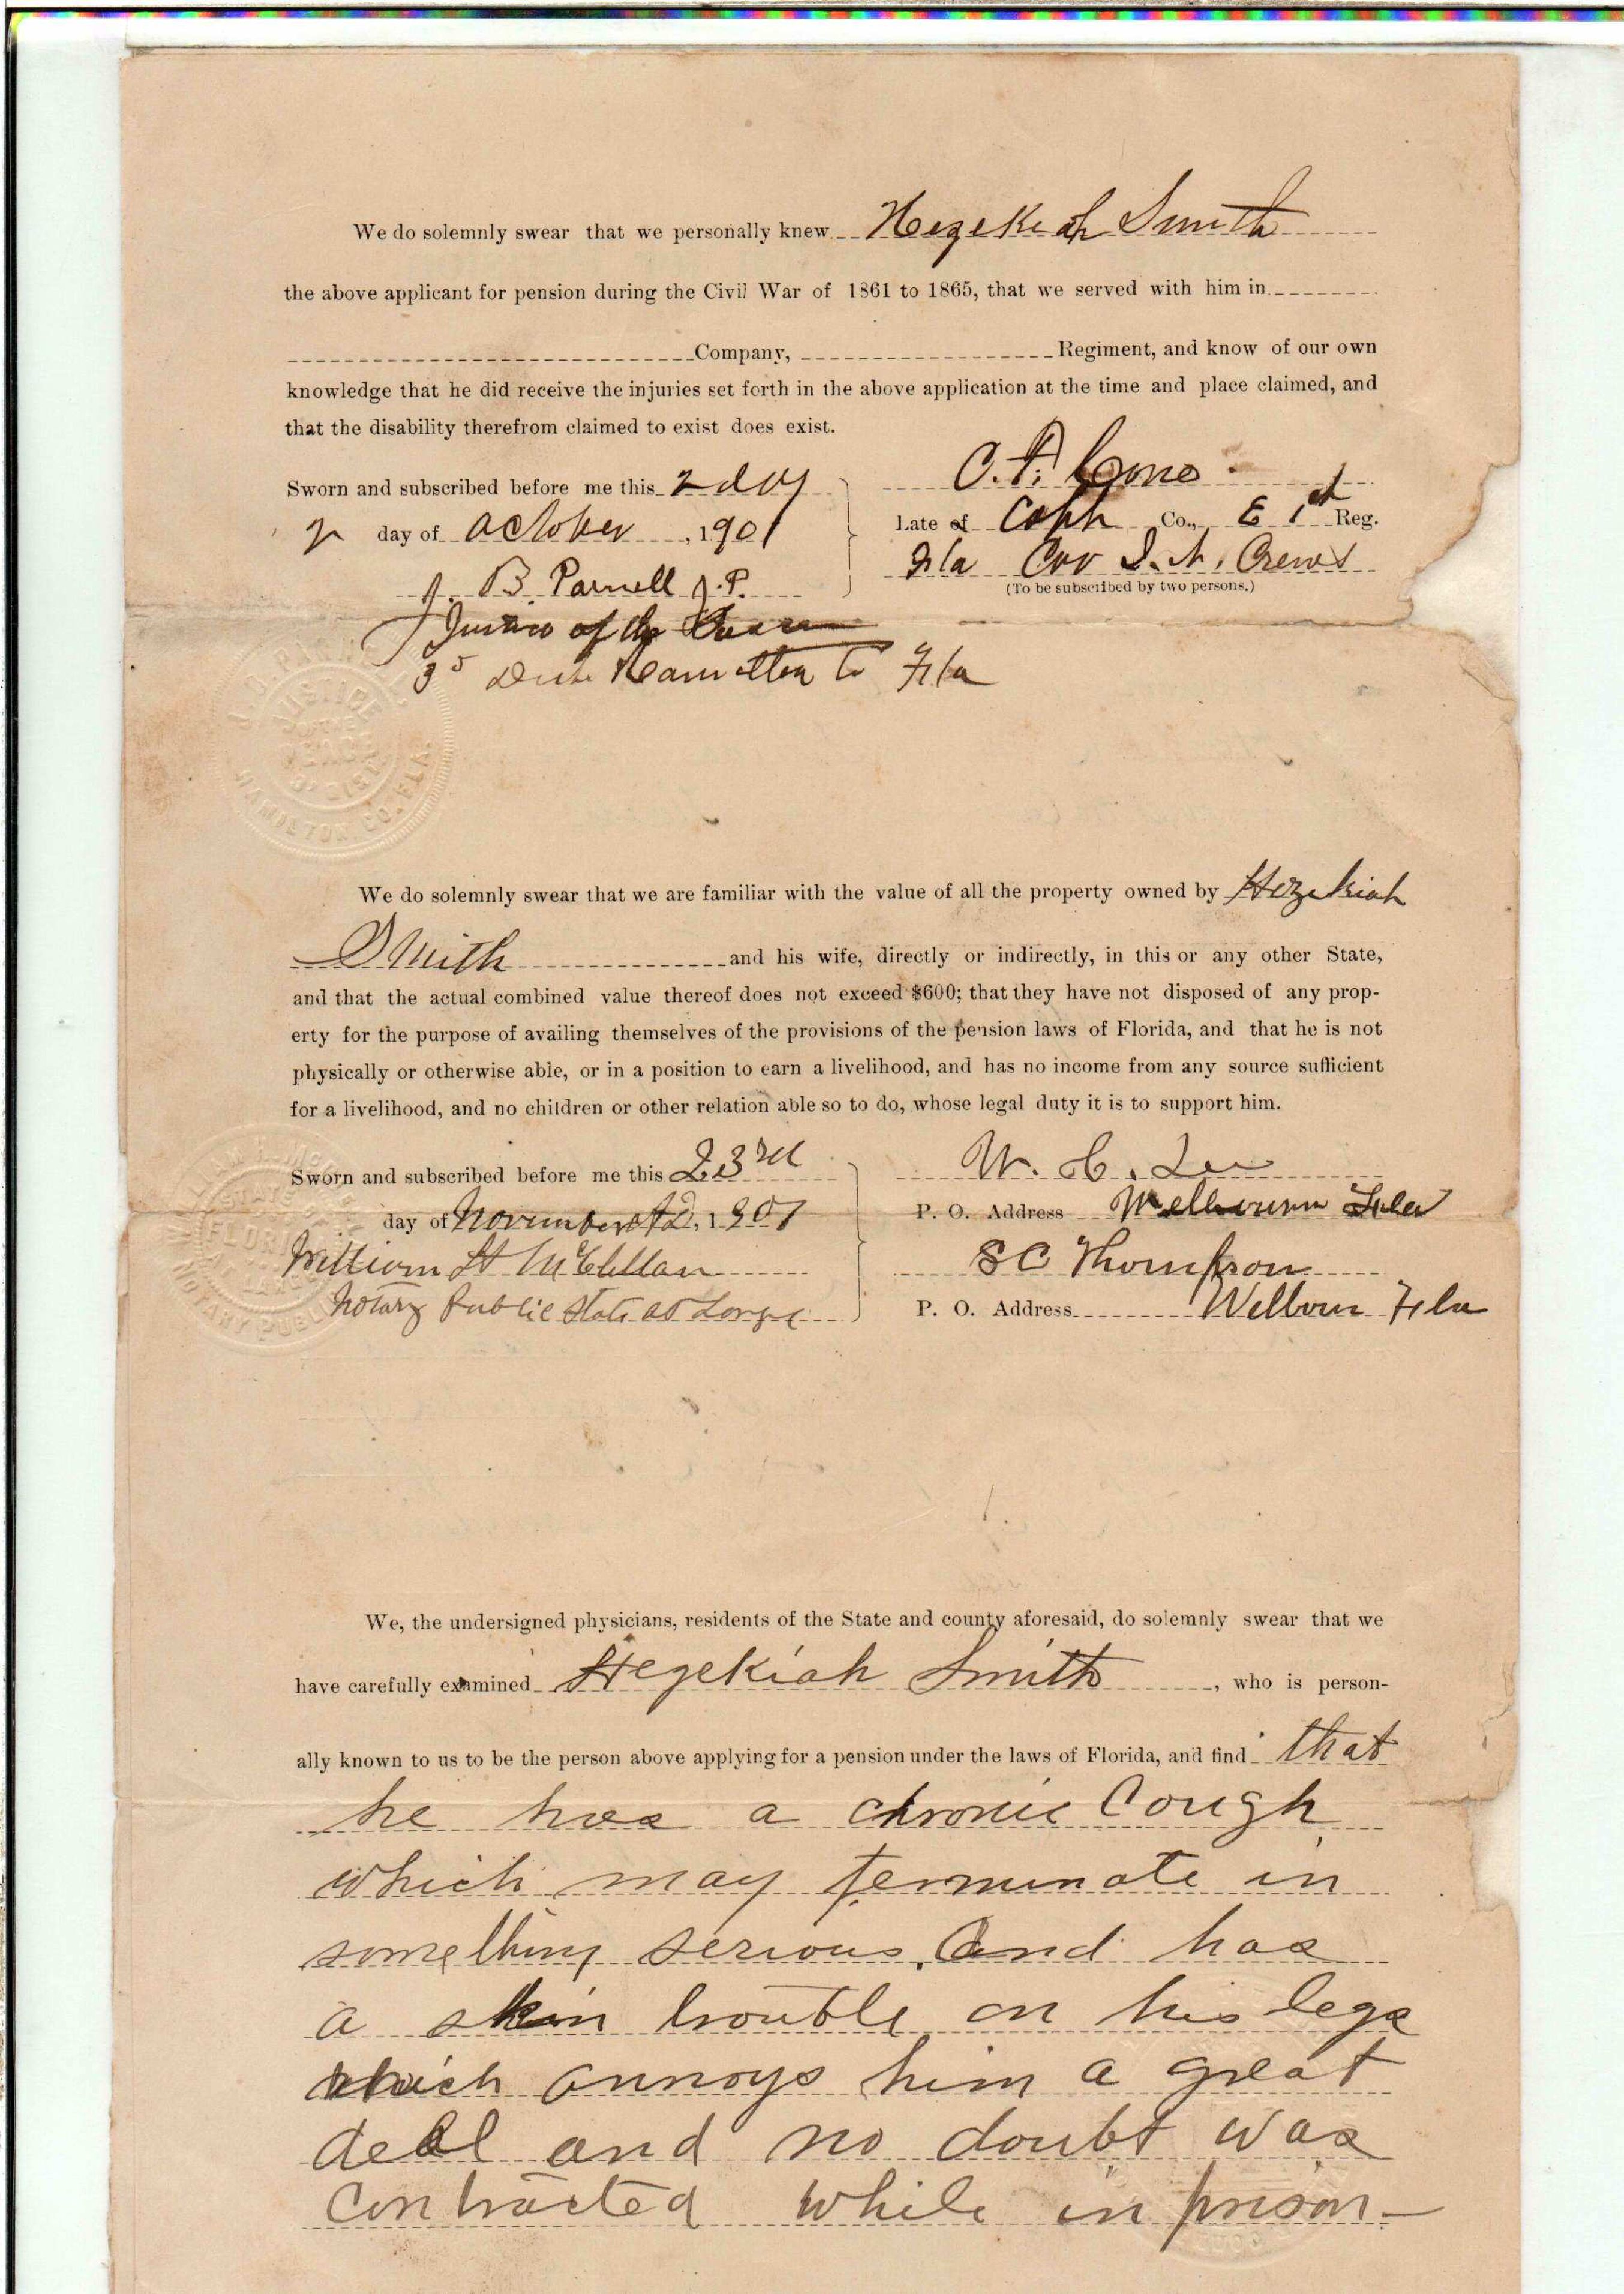 We do solemnly swear that we personally knew Hezekiah Smith
the above applicant for pension during the Civil War of 1861 to 1865, that we served with him in
Company, Regiment, and know of our own
knowledge that he did receive the injuries set forth in the above application at the time and place claimed, and
that the disability therefrom claimed to exist does exist.
Sworn and subscribed before me this 2 day
2 day of October, 1901
J. B. Parnell J. P.
Justice of the
3d Dist Hamilton Co Fla
C. F. Cone
Late of Capt Co., E 1st Reg.
Fla Cav Crews
(To be subscribed by two persons.)
JUSTICE
PEACE
HAMILTON CO. FLA.
We do solemnly swear that we are familiar with the value of all the property owned by Hezekiah
Smith and his wife, directly or indirectly, in this or any other State,
and that the actual combined value thereof does not exceed $600; that they have not disposed of any prop-
erty for the purpose of availing themselves of the provisions of the pension laws of Florida, and that he is not
physically or otherwise able, or in a position to earn a livelihood, and has no income from any source sufficient
for a livelihood, and no children or other relation able so to do, whose legal duty it is to support him.
Sworn and subscribed before me this 23rd
day of November AD, 1901
William H McClellan
Notary Public State at Large
W. C. Lee
P. O. Address Welbourn Fla
S C Thompson
P. O. Address Welborn Fla
We, the undersigned physicians, residents of the State and county aforesaid, do solemnly swear that we
have carefully examined Hezekiah Smith, who is person-
ally known to us to be the person above applying for a pension under the laws of Florida, and find that
he has a chronic Cough
which may terminate in
something serious, and has
a skin trouble on his legs
which annoys him a great
deal and no doubt was
contracted while in prison-